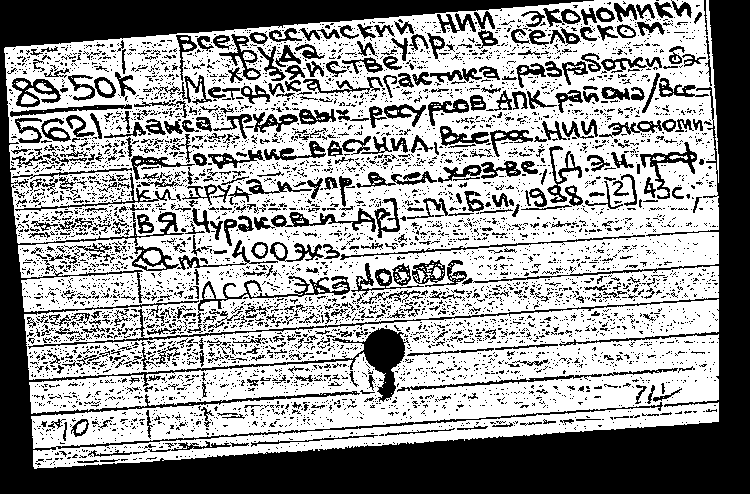 Всероссийский НИИ экономики,
труда и упр. в сельском
хозяйстве.
89-50К
Методика и практика разработки ба-
5621
ланса трудовых ресурсов АПК района/Все-
рос. отд-ние ВАСХНИЛ, Всерос. НИИ экономи-
ки, труда и упр. в сел. хоз-ве; [Д.э.н., проф.
В.Я. Чураков и др]. - М.: Б.и., 1988. - [2], 43с.;
20см. - 400 экз.
ДСП. экз N00006.
10